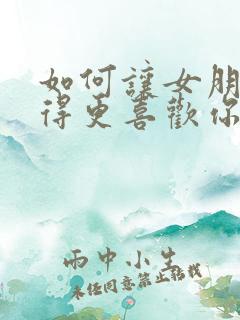 如何讓女朋
得更喜歡你
雨中小生
未经同意禁止转载